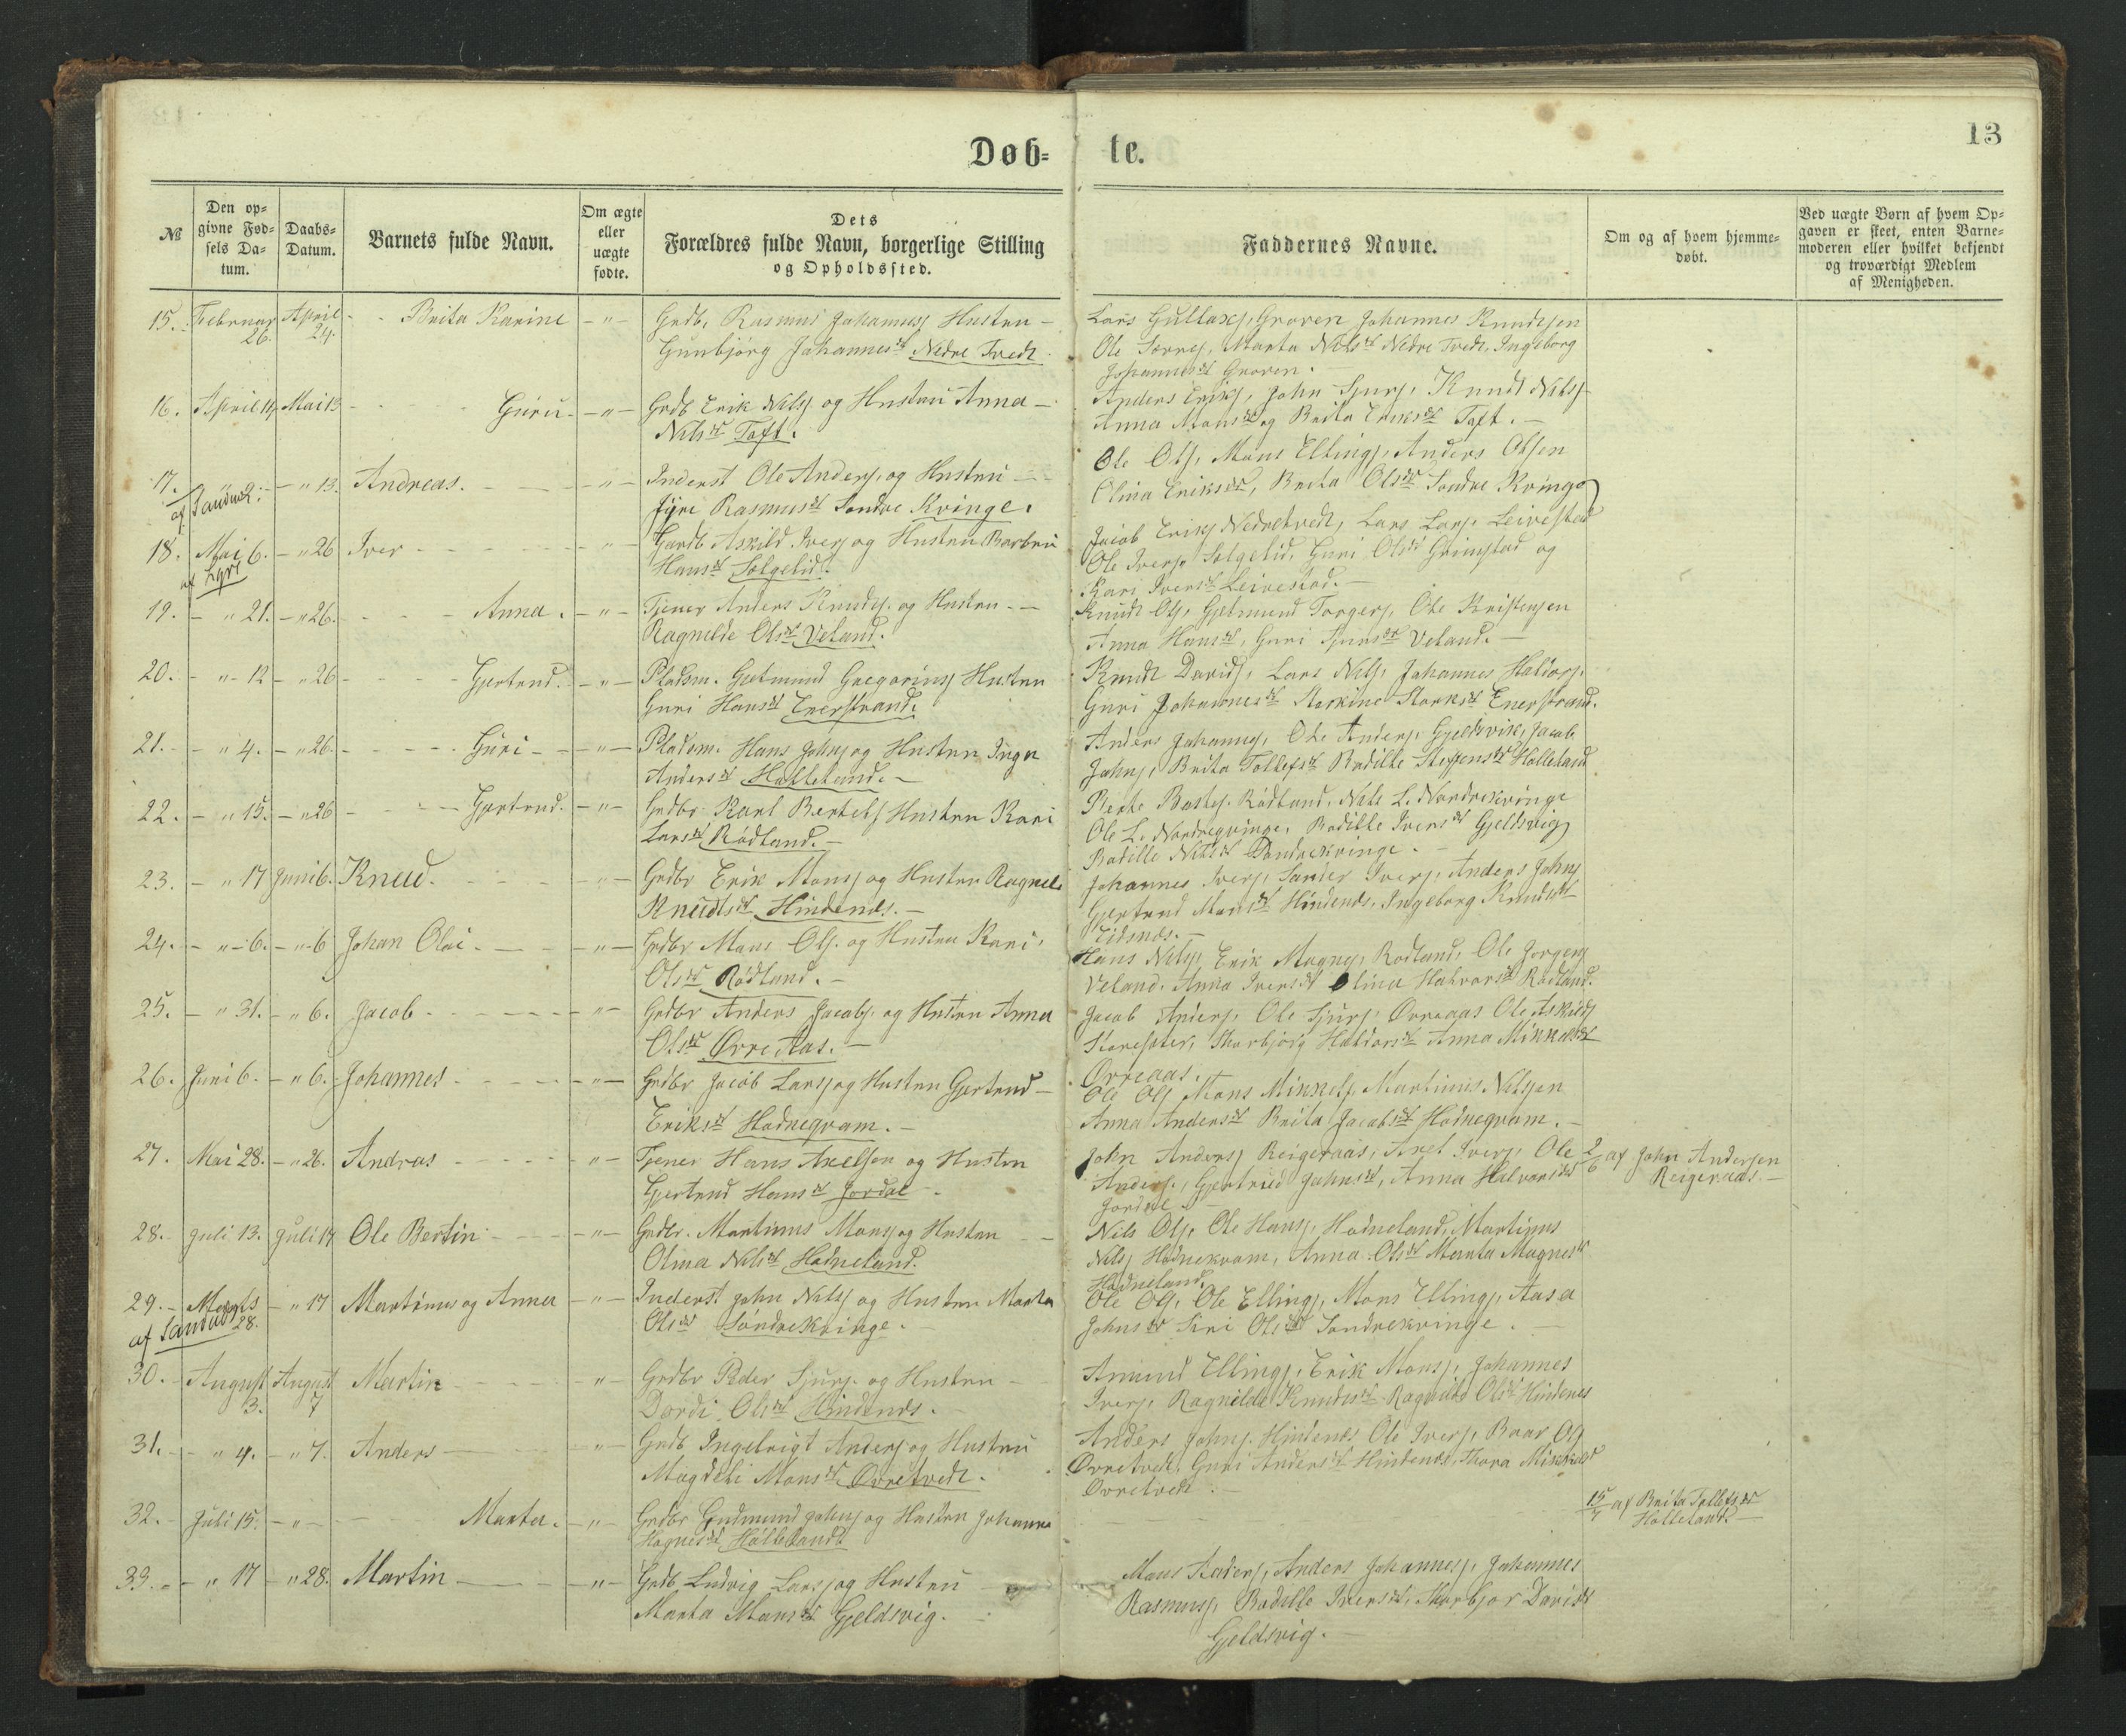 13
Døb-
te.
№
Den op-
givne Fød-
sels Da-
tum.
Daabs-
Datum.
Barnets fulde Navn.
Om ægte
eller
uægte
fødte.
Dets
Forældres fulde Navn, borgerlige Stilling
og Opholdssted.
Faddernes Navne.
Om og af hvem hjemme-
døbt.
Ved uægte Børn af hvem Op-
gaven er skeet, enten Barne-
moderen eller hvilket bekjendt
og troværdigt Medlem
af Menigheden.
15. Februar April - - Brita Karine - " - Grdb. Rasmus Johannesj Hustru -
26. 24. Gunbjörg Johannesdr Nedre Tvedt
Lars Gullaxj, Groven Johannes Knudsjen
Ole Marta Nilsdr Nedre Tvedt, Ingeborg
Johannesdr Groven.
16. April 14 Mai 13 - - Guru - " - Grdb Erik Nilsj og Hustru Anna -
Nilsdr Toft.
Anders Eriksj, John Sjurj, Knudt Nilsj
Anna Monsdr og Brita Eriksdr Toft. -
17. " 2. - " 13. Andreas. - " - Inderst Ole Andersj. og Hustru -
af Sandnes Rasmusdr Söndre Kvinge.
Ole Olsj, Mons Ellingj, Anders Olsen
Olina Eriksdr, Brita Olsdr Söndre Kvinge
18. Mai 6. - " 26 Iver - - - " Gardb Askild Iversj og Hustru Barbru
Hansdr Solgelid.
Jacob Eriksj Nedretvedt, Lars Larsj. Leirestad
Ole Iversj. Solgelid, Guri Olsdr Grimstad og
Kari Iversdr Leirestad. -
19. - " 21. - " 26. - - Anna. - " - Tjener Anders Knudsj. og Hustru - -
Ragnilde Olsdr Veland.
Knudt Olsj, Gjetmund Torgersj, Ole Kristensen
Anna Hansdr, Guri Sjursdr Veland. -
20. - " - 12 - " 26 - - Gjertrud. - " - Pladsm. Gjetmund Gregoriusj Hustru
Guri Hansdr Enerstrand.
Knudt Davidsj, Lars Nilsj, Johannes Haldorsj.
Guri Johannesdr Enerstrand.
21. - " 4. - " 26. - - Guri - - " - Pladsm. Hans Johnsj og Hustru Inga
Andersdr Holleland. -
Anders Johannesj, Ole Andersj. Gjeldsvik, Jacob
Johnsj, Brita Tollefsdr Radille Steffensdr Holleland
22. - " 15. - " 26 - - Gjertrud. - " - Grdbr Karl Bertelsj Hustru Kari
Larsdr Rödland. -
Rödland, Nils L. Nordrekvinge
Ole L. Nordregvinge, Bodille Iversdr Gjeldsvig
Bodille Nilsdr Söndrekvinge.
23. - " 17 Juni 6. Knud. - - - " - Grdbr Erik Monsj og Hustru Ragnele
Knudtsdr Hindenes. -
Johannes Iversj, Sander Iversj, Anders Johnsj
Gjertrud Monsdr Hindenes, Ingeborg Knudsdr
Eidsnes. -
24. - " - 6. - " 6 Johan Olai - - - " - Grdbr Mons Olsj. og Hustru Kari,
Olsdr Rödland. -
Hans Nilsj, Erik Magnesj, Rodland, Ole
Veland, Anna Iversdr Olina Halvorsdr Rodland.
25. - " 31. - " 6. Jacob - - - " - Grdbr Anders Jacobsj. og Hustru Anna
Olsdr Örreaas. -
Jacob Andersj, Ole Sjursj, Orreaas Ole Askildsj
Haldorsdr Anna Mikkelsdr
Orreaas. -
26. Juni 6. - " 6. Johannes - - - " - Grdbr Jacob Larsj og Hustru Gjertrud -
Eriksdr Hodneqvam. -
Ole Olsj Mons Mikkelsj, Martinus Nilsen
Anna Andersdr Brita Jacobsdr Hodneqvam. -
27. Mai 28. - " 26. Andras - - - " - Tjener Hans Axelsen og Hustru
Gjertrud Hansdr Jordal -
John Andersj Reigeraas, Axel Iversj, Ole
Andersj, Gjertrud Johnsdr, Anna Halvorsdr
Jordal -
2/6 af John Andersen
Reigeraas -
28. Juli 13. Juli 17 Ole Bertin - - - " - Grdbr. Martinus Monsj og Hustru - -
Olina Nilsdr Hodneland.
Nils Olsj, Ole Hansj, Hodneland, Martinus
Nilsj Hodnekvam, Anna Olsdr Marta Magnesdr
Hodneland.
29. - Marts - " 17 Martinus og Anna - " - Inderst John Nilsj og Hustru Marta
af Sandnes 28. Olsdr Söndrekvinge.
Ole Olsj, Ole Ellingj, Mons Ellingj, Aasa
Johnsdr Siri Olsdr Söndrekvinge. -
30. - August August Martin - - - " - Grdbr Peder Sjursj. og Hustru -
3. 7 Dordi Olsdr Hindenes.
Amund Ellingj, Erik Monsj, Johannes
Iversj, Ragnilde Knudsdr Ragnilde Olsdr Hindenes
31. - " 4. - " 7. Anders - - " - Grdb Ingebrigt Andersj og Hustru
Magdeli Monsdr Övretvedt.
Anders Johnsj. Hindenes Ole Iversj, Olsj
Övretvedt, Guri Andersdr Hindenes, Thora Mikkelsdr
Övretvedt -
32. - Juli 15. - " - Marta. - " - Grdbr Gudmund Johnsj og Hustru Johanna
Magnesdr Holleland
15/7 af Brita Tollefsdr
Holleland -
33. - " 17 - " 28. Martin - - - " - Grdb Ludvig Larsj og Hustru
Marta Monsdr Gjeldsvig. -
Mons Andersj, Anders Johannesj, Johannes
Rasmusj, Bodille Iversdr, Davidsdr
Gjeldsvig. -